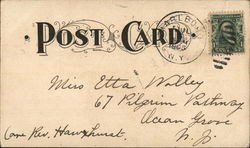 POST CARD
N.Y.
Miss Etta Wolley
67 Pilgrim Pathway
Ocean Grove
Care Rev. Hawxhurst. N.J.